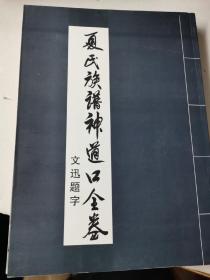 夏氏族谱神道口全卷
文迅题字